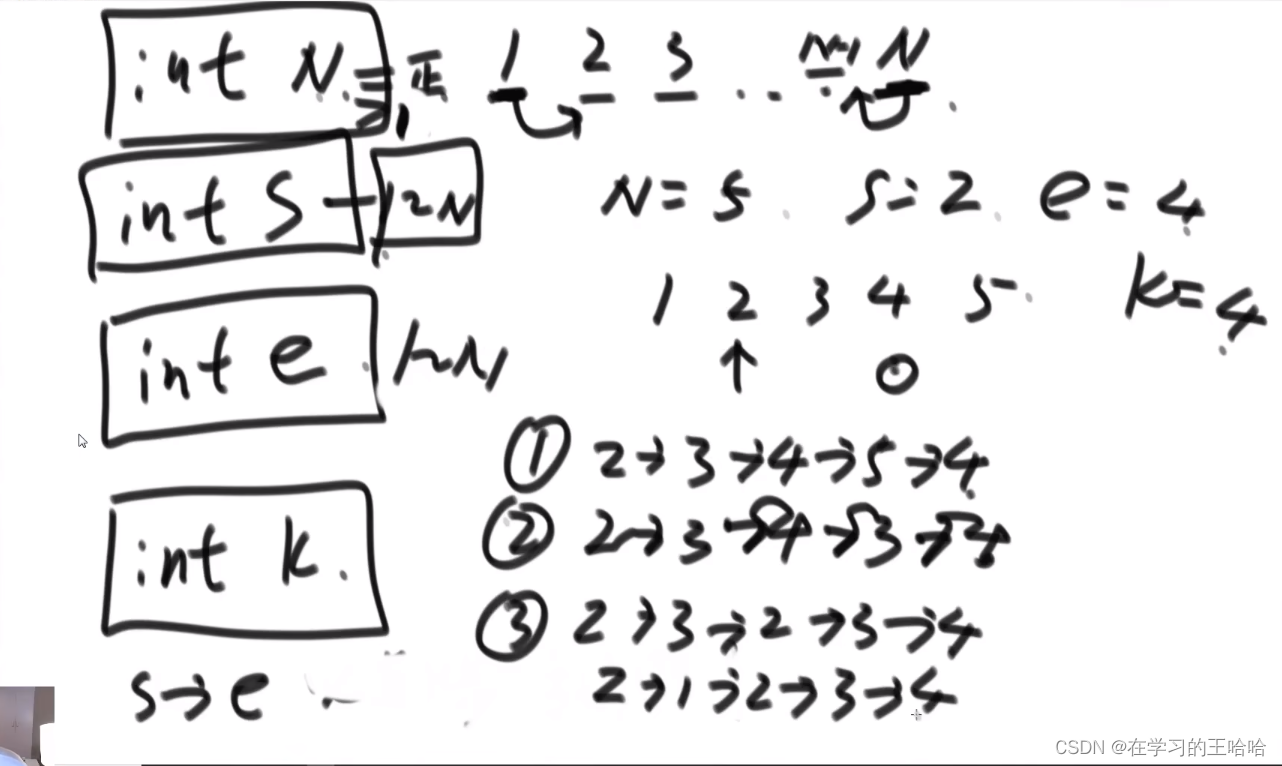 int N. ≥1 正
1 2 3 .. N-1 N
int S - 1~N
N=5 S=2 e=4
1 2 3 4 5 K=4
int e 1~N
① 2→3→4→5→4
② 2→3→4→3→4
int K.
③ 2→3→2→3→4
S→e
2→1→2→3→4
CSDN @在学习的王哈哈